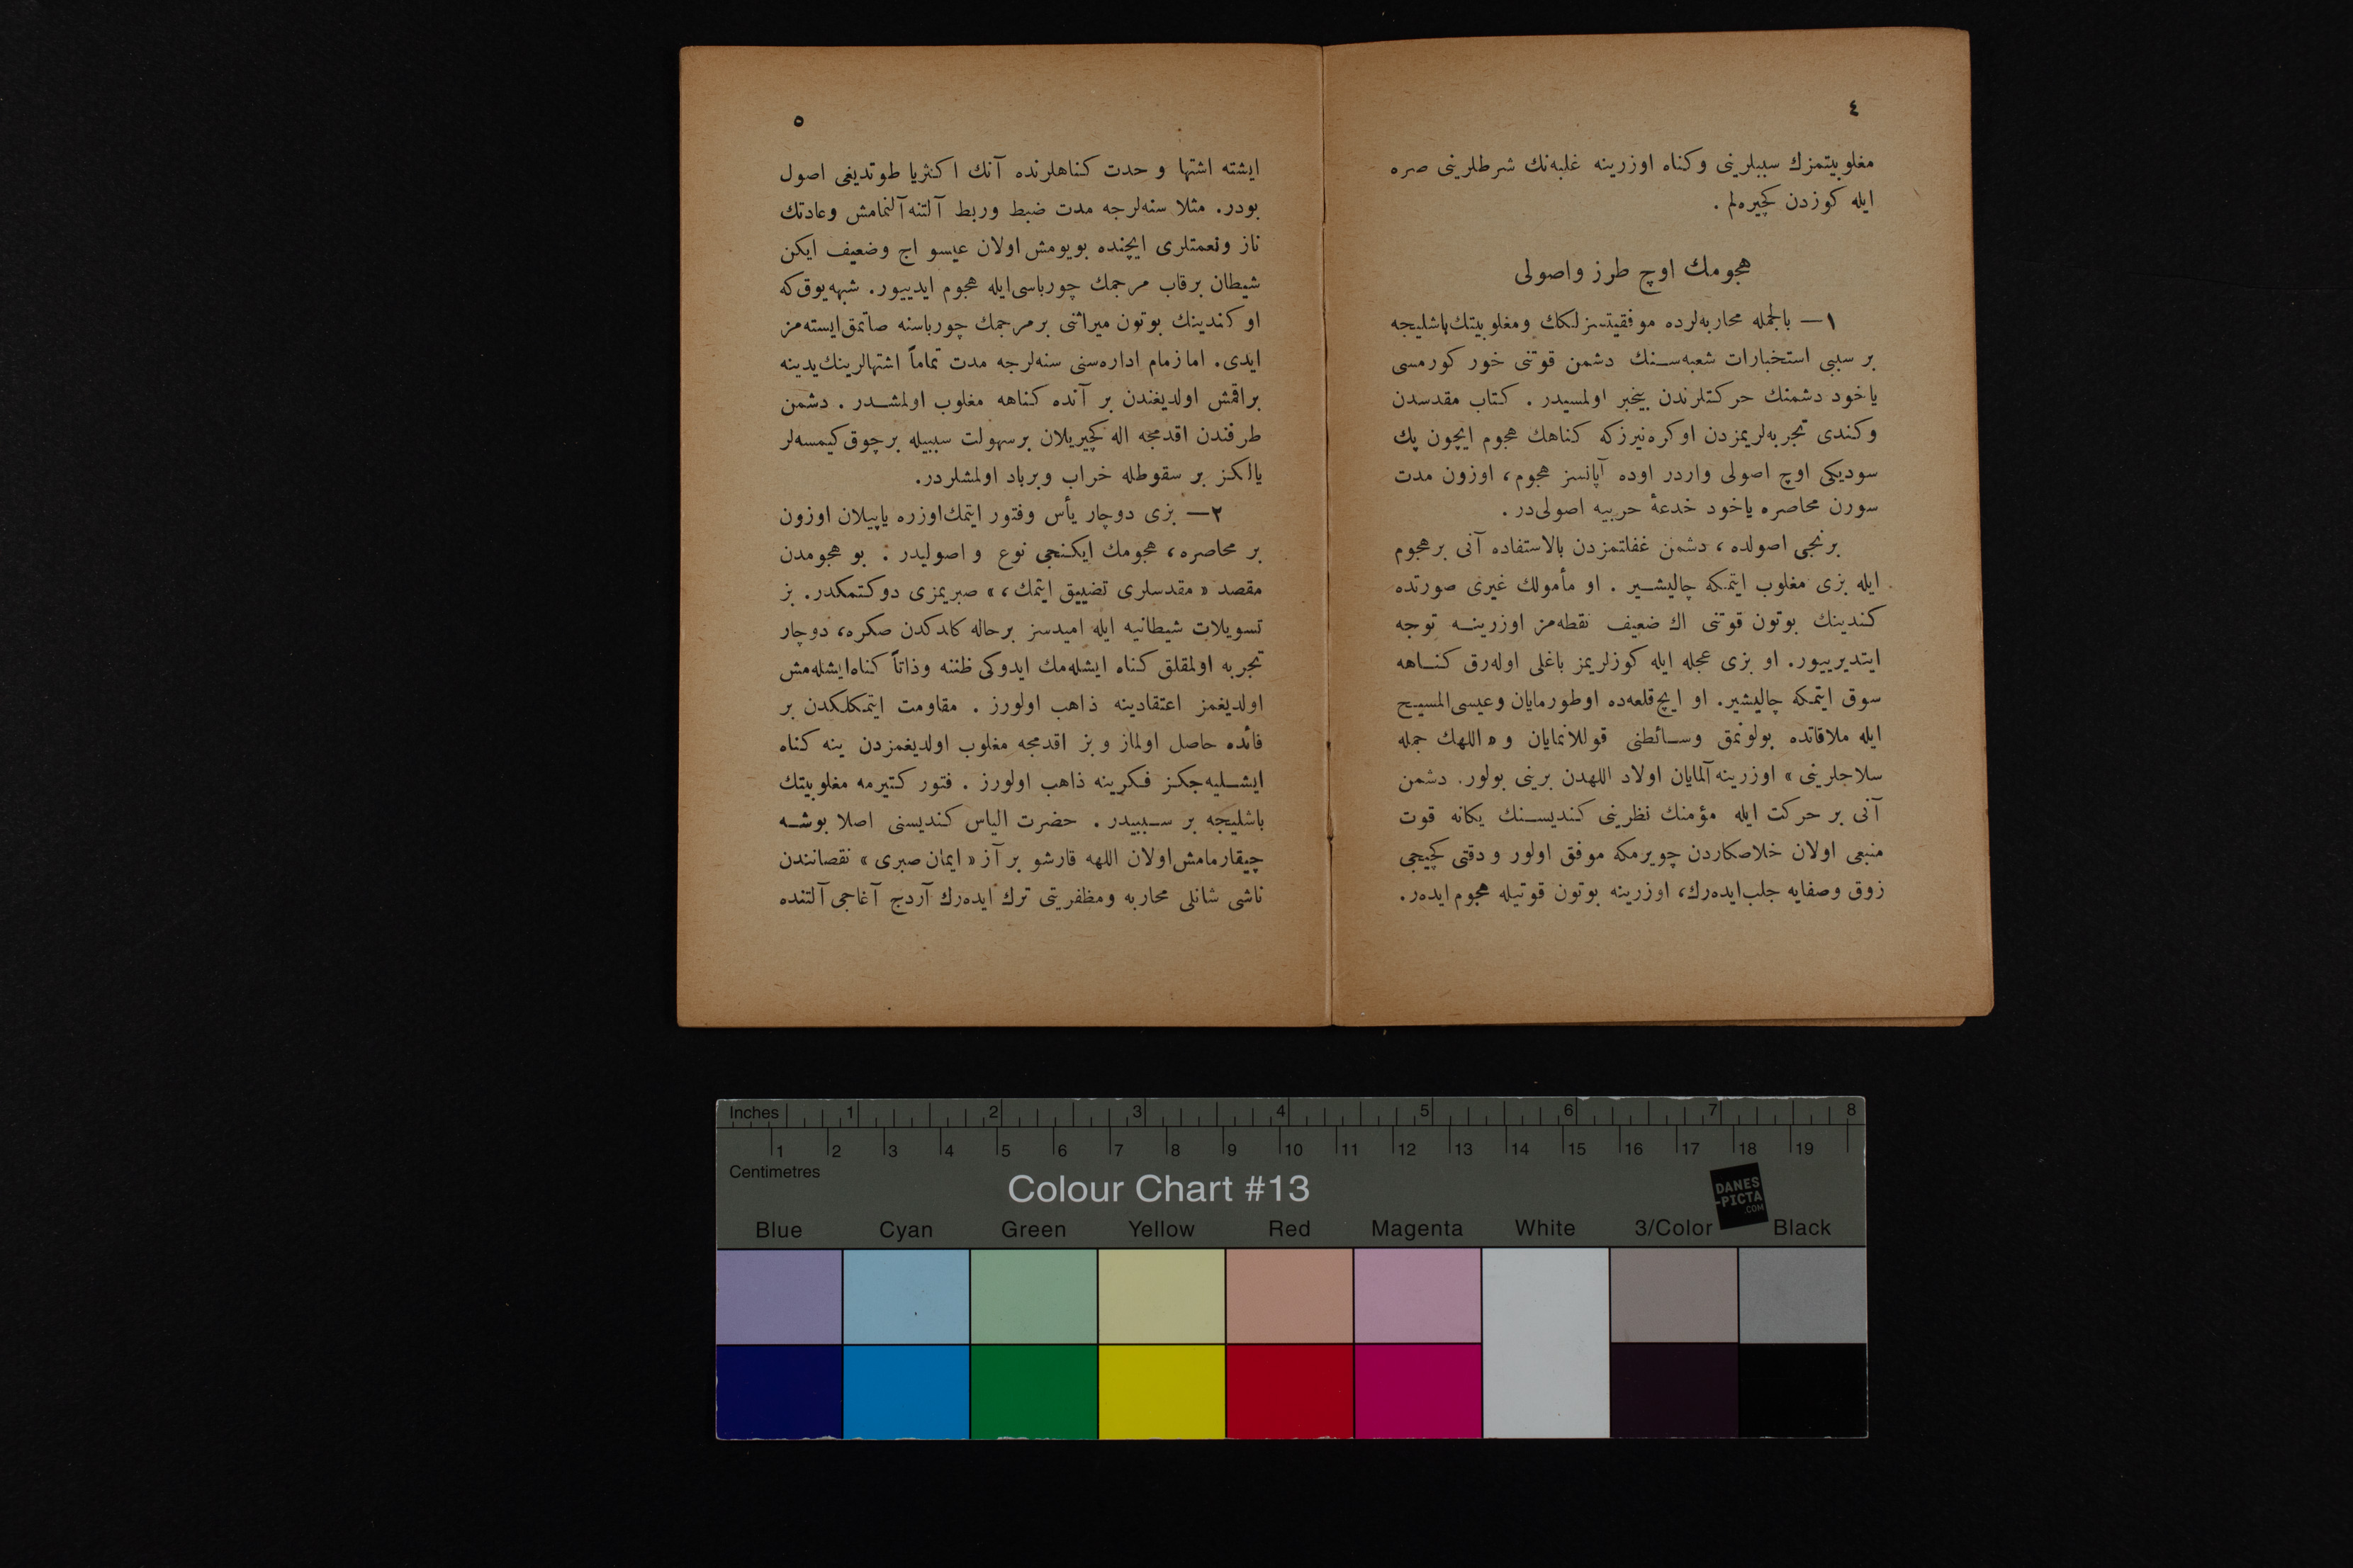 ٤
مغلوبیتمزك سببلرینی وكناه اوزرینه غلبه‌نك شرطلرینی صره
ایله كوزدن كچیره‌لم .
هجومك اوچ طرز واصولی
١— بالجمله محاربه‌لرده موفقیتسزلكك ومغلوبیتك باشلیجه
بر سببی استخبارات شعبه‌سنك دشمن قوتنی خور كورمسی
یاخود دشمنك حركتلرندن بیخبر اولمسیدر . كتاب مقدسدن
وكندی تجربه‌لریمزدن اوكره‌نیرزكه كناهك هجوم ایچون پك
سودیكی اوچ اصولی واردر اوده آپانسز هجوم، اوزون مدت
سورن محاصره یاخود خدعهٔ حربیه اصولی‌در .
برنجی اصولده ، دشمن غفلتمزدن بالاستفاده آنی برهجوم
ایله بزی مغلوب ایتمكه چالیشیر . او مأمولك غیری صورتده
كندینك بوتون قوتنی اك ضعیف نقطه‌مز اوزرینه توجه
ایتدیرییور. او بزی عجله ایله كوزلریمز باغلی اوله‌رق كناهه
سوق ایتمكه چالیشیر. او ایچ قلعه‌ده اوطورمایان وعیسی‌المسیح
ایله ملاقاتده بولونمق وسائطنی قوللانمایان و « اللهك جمله
سلاحلرینی » اوزرینه آلمایان اولاد اللهدن برینی بولور. دشمن
آنی بر حركت ایله مؤمنك نظرینی كندیسنك یكانه قوت
منبعی اولان خلاصكاردن چویرمكه موفق اولور و دقتی كچیجی
زوق وصفایه جلب‌ایده‌رك، اوزرینه بوتون قوتیله هجوم ایده‌ر.
٥
ایشته اشتها و حدت كناهلرنده آنك اكثریا طوتدیغی اصول
بودر. مثلا سنه‌لرجه مدت ضبط وربط آلتنه آلنمامش وعادتك
ناز ونعمتلری ایچنده بویومش اولان عیسو اچ وضعیف ایكن
شیطان برقاب مرجمك چورباسی‌ایله هجوم ایدییور. شبهه‌یوق‌كه
او كندینك بوتون میراثنی برمرجمك چورباسنه صاتمق‌ایسته‌مز
ایدی. اما زمام اداره‌سنی سنه‌لرجه مدت تماماً اشتهالرینك‌یدینه
براقمش اولدیغندن بر آنده كناهه مغلوب اولمشدر . دشمن
طرفندن اقدمجه اله كچیریلان برسهولت سببیله برچوق كیمسه‌لر
یالكز بر سقوطله خراب وبرباد اولمشلردر.
٢— بزی دوچار یأس وفتور ایتمك‌اوزره یاپیلان اوزون
بر محاصره، هجومك ایكنجی نوع و اصولیدر . بو هجومدن
مقصد « مقدسلری تضییق ایتمك ، » صبریمزی دوكتمكدر. بز
تسویلات شیطانیه ایله امیدسز برحاله كلدكدن صكره، دوچار
تجربه اولمقلق كناه ایشله‌مك ایدوكی ظننه وذاتاً كناه‌ایشله‌مش
اولدیغمز اعتقادینه ذاهب اولورز . مقاومت ایتمكلكدن بر
فائده حاصل اولماز و بز اقدمجه مغلوب اولدیغمزدن ینه كناه
ایشلیه‌جكز فكرینه ذاهب اولورز . فتور كتیرمه مغلوبیتك
باشلیجه بر سببیدر . حضرت الیاس كندیسنی اصلا بوشه
چیقارمامش‌اولان اللهه قارشو بر آز « ایمان صبری » نقصانندن
ناشی شانلی محاربه ومظفریتی ترك ایده‌رك آردج آغاجی آلتنده
Inches 1 2 3 4 5 6 7 8
1 2 3 4 5 6 7 8 9 10 11 12 13 14 15 16 17 18 19
Centimetres
Colour Chart #13
DANES
-PICTA
.COM
Blue Cyan Green Yellow Red Magenta White 3/Color Black